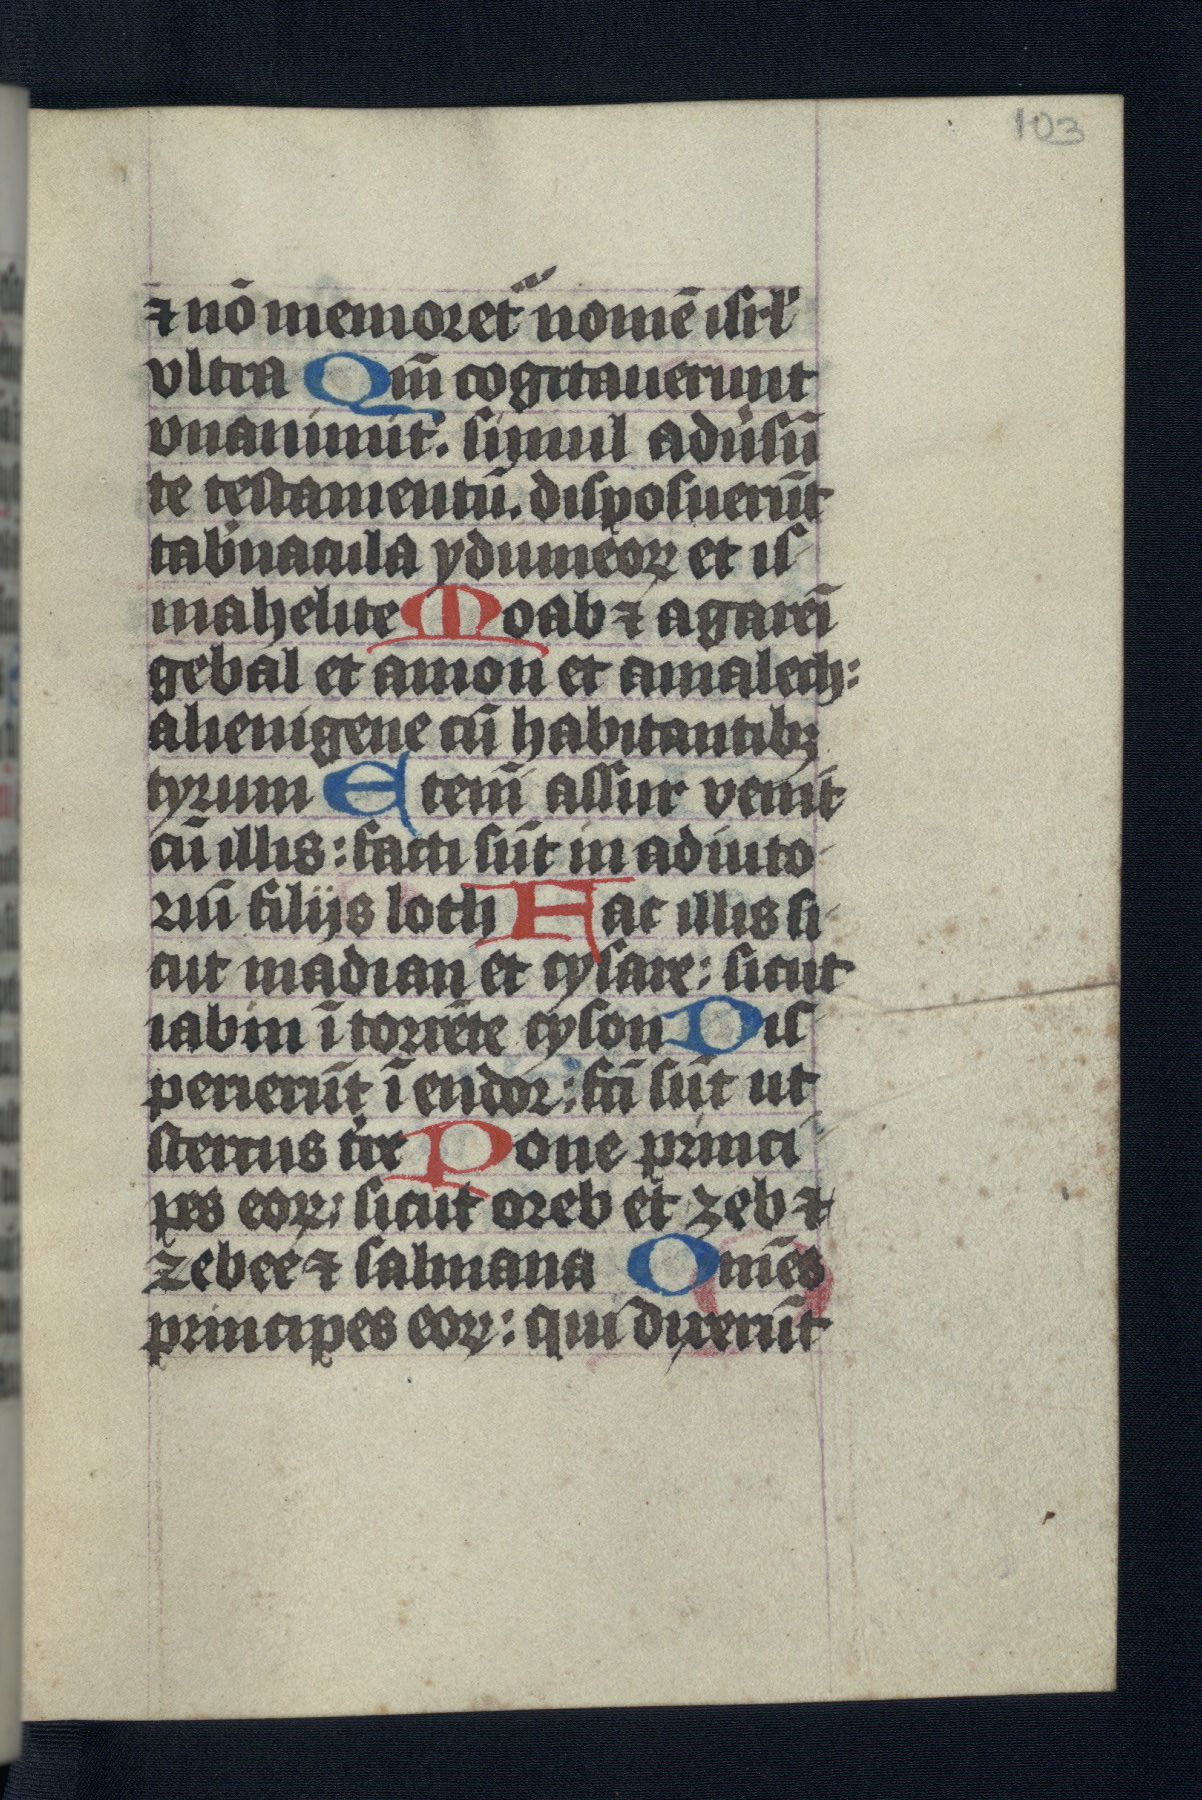 103
⁊ nō memoret᷑ nomē isrl᷑
vltra Qm̄ cogitauerunt
vnanimit᷑. simul adu᷑sū
te testamentū. disposuerūt
tab᷑nacula ydumeoꝝ et is
mahelite Moab ⁊ agareī
gebal et amon et amalech:
alienigene cū habitantibꝫ
tyrum Etem̄ assur venit
cū illis: facti sūt in adiuto
riū filijs loth Fac illis si
cut madian et cysare: sicut
iabin ī torrēte cyson Dis
perierūt ī endor: fcī sūt ut
stercus t᷑re Pone princi
pes eoꝝ: sicut oreb et zeb ⁊
zebee ⁊ salmana Om̄es
principes eoꝝ: qui dixerūt